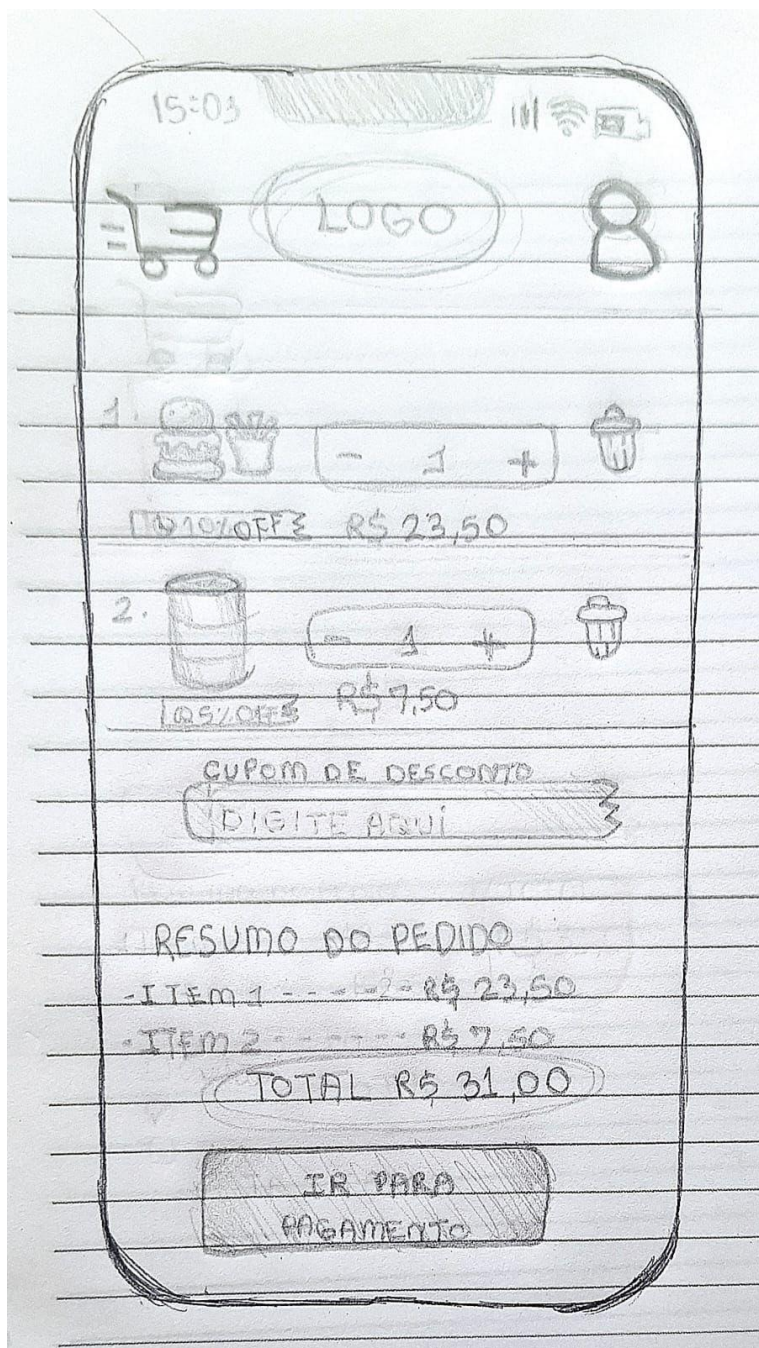 15:03
LOGO
1.
- 1 +
10% OFF R$ 23,50
2.
- 1 +
5% OFF R$ 7,50
CUPOM DE DESCONTO
DIGITE AQUI
RESUMO DO PEDIDO
-ITEM 1 - - - - - - R$ 23,50
-ITEM 2 - - - - - - R$ 7,50
TOTAL R$ 31,00
IR PARA
PAGAMENTO